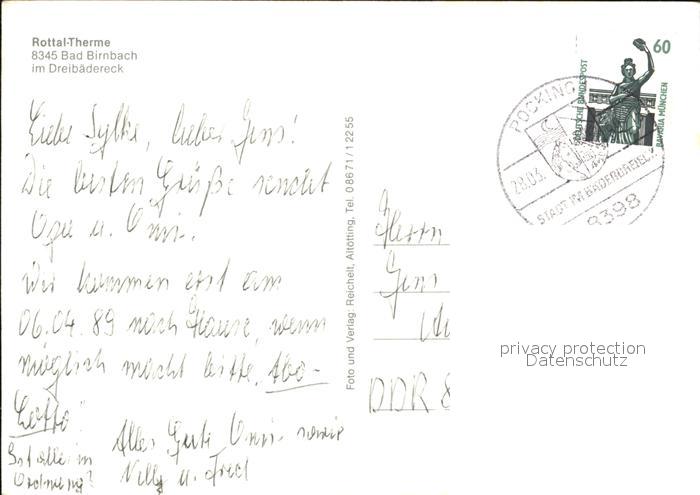 Rottal-Therme
8345 Bad Birnbach
im Dreibädereck
Liebe Sylke, lieber Jens!
Die besten Grüße sendet
Opa u. Omi.
Wir kommen erst am
06.04.89 nach Hause, wenn
möglich macht bitte, Abo-
Lotto!
Ist alles in
Ordnung?
Alles Gute Omi sowie
Nelly u. Fred
Foto und Verlag: Reichelt, Altötting, Tel. 0 86 71 / 1 22 55
60
DEUTSCHE BUNDESPOST
BAVARIA MÜNCHEN
POCKING
28.03.
STADT IM BÄDERDREIECK
8398
Herrn
Jens
DDR 8
privacy protection
Datenschutz